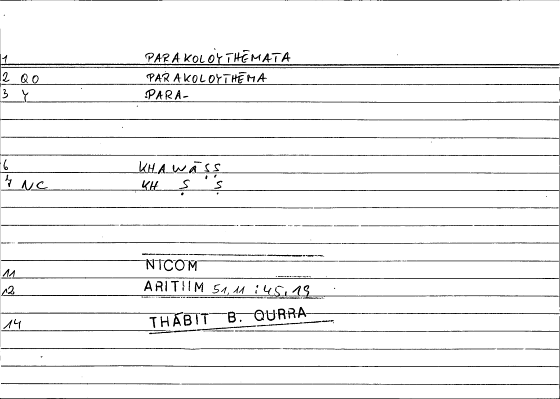 1 PARAKOLOYTHĒMATA
2 QO PARAKOLOYTHĒMA
3 Y PARA-
6 KHAWĀṢṢ
7 NC KH Ṣ Ṣ
11 NICOM
12 ARITHM 51,11 : 45,19
14 THĀBIT B. QURRA